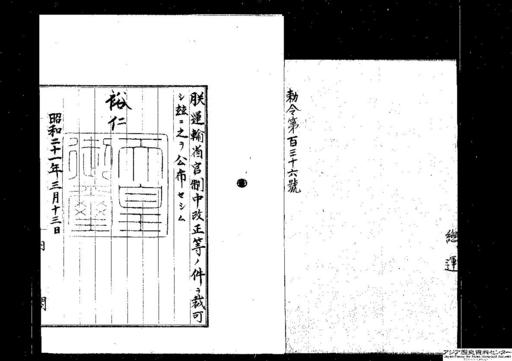 勅令第百三十六號
總運
朕運輸省官制中改正等ノ件ヲ裁可
シ茲ニ之ヲ公布セシム
裕仁
天皇御璽
昭和二十一年三月十三日
内閣
アジア歴史資料センター